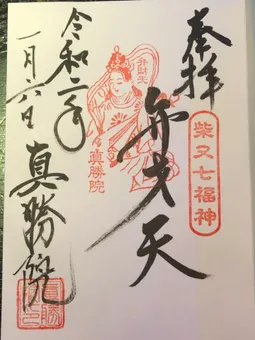 奉拝
柴又七福神
弁才天
弁財天
真勝院
令和二年
一月六日
真勝院
真勝院印